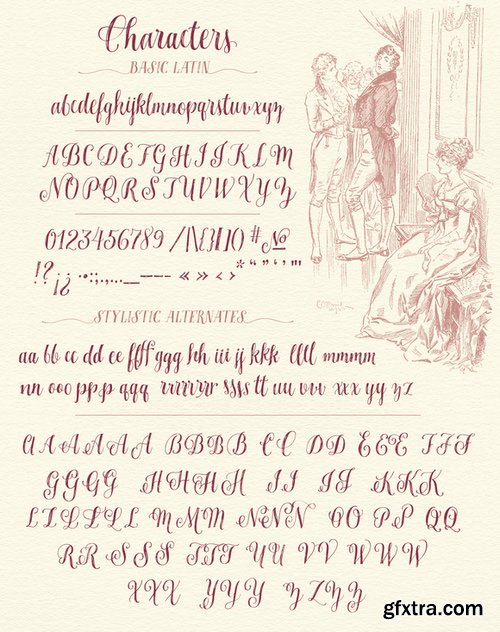 Characters
BASIC LATIN
abcdefghijklmnopqrstuvxyz
ABCDEFGHIJKLM
NOPQRSTUVWXYZ
0123456789 /|\{}[]() #№
!?¡¿ •·:;.,…_—–- «» ‹› * “” ‘’ '"
STYLISTIC ALTERNATES
aa bb cc dd ee ffff ggg hh iii ij kkk llll mmmm
nn ooo ppp qqq rrrrrrr ssss tt uu vvv xxx yy zz
AAAAAA BBBB CC DD EEE FFF
GGGG HHHH II JJ KKK
LLLLLL MMM NNN OO PP QQ
RR SSS TTT UU VV WWW
XXX YYY ZZZZ
gfxtra.com